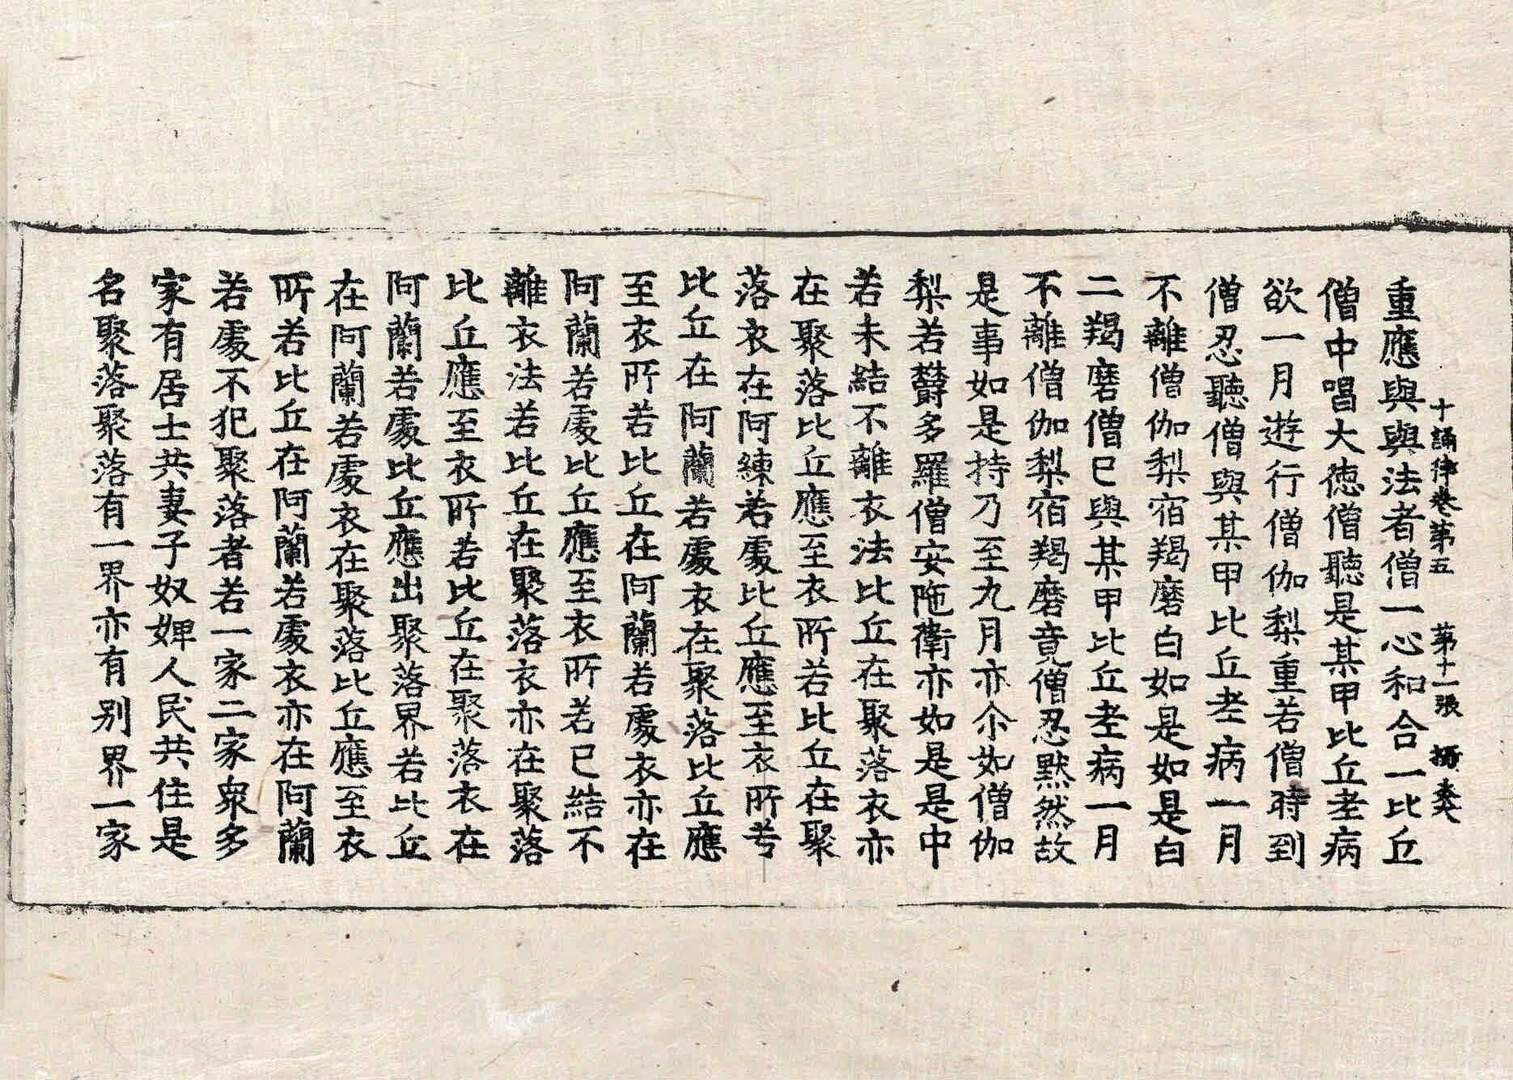 十誦律卷第五 第十一張 攝
重應與與法者僧一心和合一比丘
僧中唱大徳僧聽是某甲比丘老病
欲一月遊行僧伽梨重若僧時到
僧忍聽僧與某甲比丘老病一月
不離僧伽梨宿羯磨白如是如是白
二羯磨僧已與某甲比丘老病一月
不離僧伽梨宿羯磨竟僧忍默然故
是事如是持乃至九月亦尒如僧伽
梨若欝多羅僧安陁衛亦如是是中
若未結不離衣法比丘在聚落衣亦
在聚落比丘應至衣所若比丘在聚
落衣在阿練若處比丘應至衣所若
比丘在阿蘭若處衣在聚落比丘應
至衣所若比丘在阿蘭若處衣亦在
阿蘭若處比丘應至衣所若已結不
離衣法若比丘在聚落衣亦在聚落
比丘應至衣所若比丘在聚落衣在
阿蘭若處比丘應出聚落界若比丘
在阿蘭若處衣在聚落比丘應至衣
所若比丘在阿蘭若處衣亦在阿蘭
若處不犯聚落者若一家二家衆多
家有居士共妻子奴婢人民共住是
名聚落聚落有一界亦有别界一家